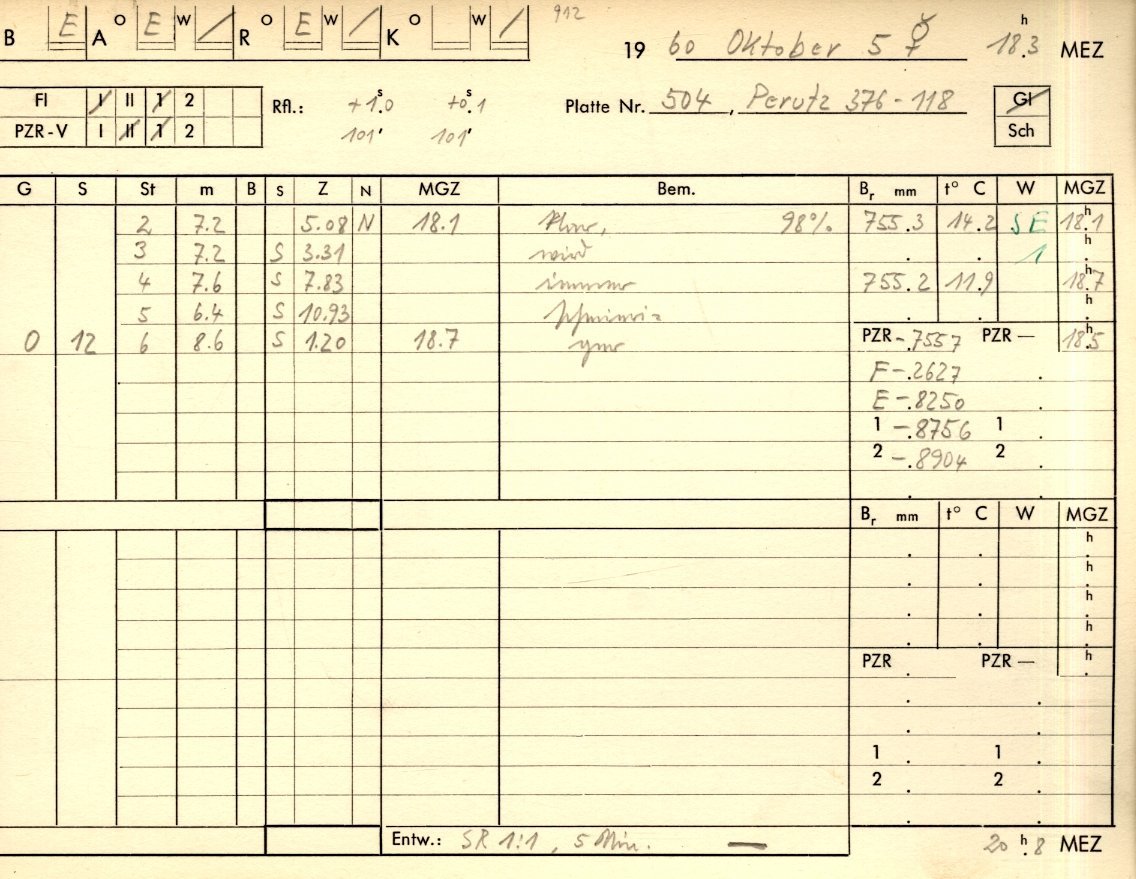 912
B E A O E W / R O E W / K O W /
19 60 Oktober 5 ☿ 18.3 h MEZ
FI I II 1 2
PZR-V I II 1 2
Rfl.: +1.0 s +0.1 s
101' 101'
Platte Nr. 504, Perutz 376-118
Gl
Sch
G S St m B S Z N MGZ Bem. Br mm t° C W MGZ
2 7.2 5.08 N 18.1 klar, 98% 755.3 14.2 SE 18.1 h
3 7.2 S 3.31 wird 1 h
4 7.6 S 7.83 immer 755.2 11.9 18.7 h
5 6.4 S 10.93 h
0 12 6 8.6 S 1.20 18.7 PZR -.7557 PZR — 18.5 h
F -.2627
E -.8250
1 -.8756 1
2 -.8904 2
Br mm t° C W MGZ
h
h
h
h
PZR PZR — h
1 1
2 2
Entw.: SR 1:1, 5 Min. — 20 h.8 MEZ